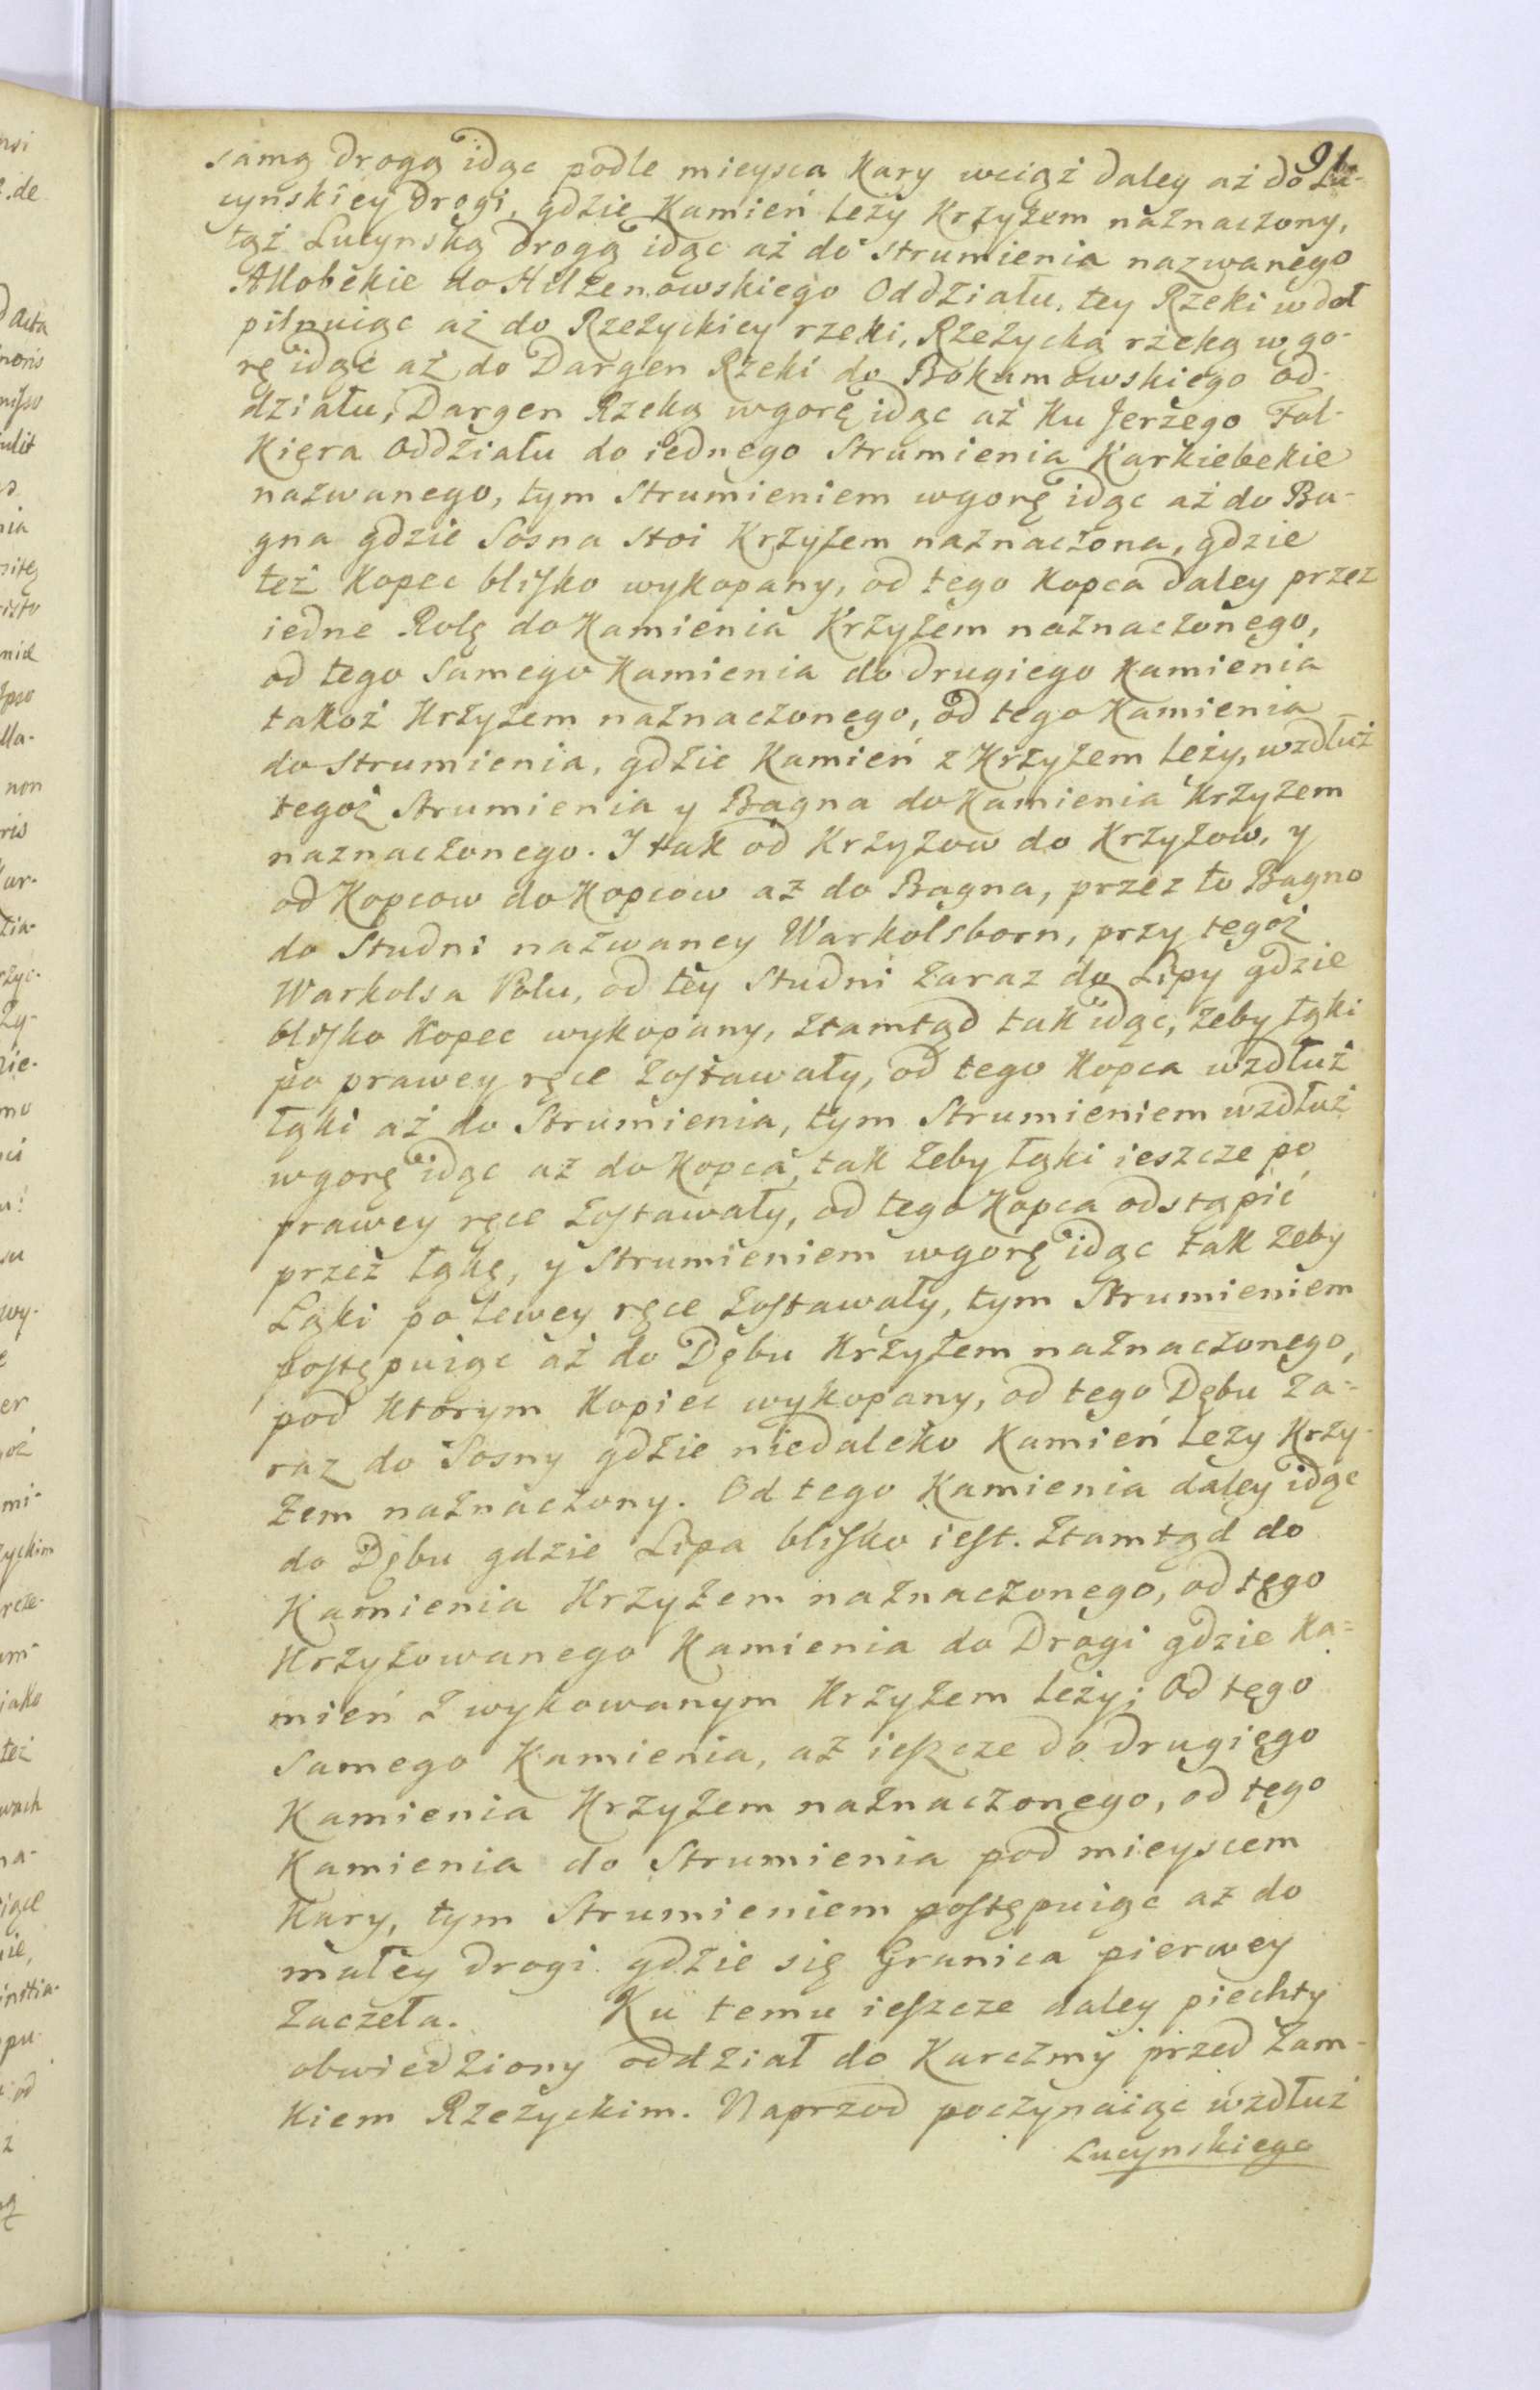 91
samą drogą idąc podle mieysca Kary wciąż daley aż do Lu-
cynskiey drogi, gdzie Kamień leży Krzyżem naznaczony,
tąż Lucynską drogą idąc aż do strumienia nazwanego
Allobekie do Hilzenowskiego Oddziału, tey Rzeki wdoł
pilnuiąc aż do Rzeżyckiey rzeki, Rzeżycką rzeką wgo-
rę idąc aż do Dargen Rzeki do Bokumowskiego od-
działu, Dargen Rzeką wgorę idąc aż Ku Jerzego Fol-
Kiera Oddziału do iednego Strumienia Karkiebekie
nazwanego, tym Strumieniem wgorę idąc aż do Ba-
gna gdzie Sosna stoi Krzyżem naznaczona, gdzie
też Kopec blisko wykopany, od tego Kopca daley przez
iedne Rolę do Kamienia Krzyżem naznaczonego,
od tego samego Kamienia do drugiego Kamienia
takoż Krzyżem naznaczonego, od tego Kamienia
do Strumienia, gdzie Kamień z Krzyżem leży, wzdłuż
tegoż Strumienia y Bagna do Kamienia Krzyzem
naznaczonego. I tak od Krzyzow do Krzyzow, y
od Kopcow do Kopcow aż do Bagna, przez to Bagno
do Studni nazwaney Warkolsborn, przy tegoż
Warkolsa Polu, od tey Studni zaraz do Lipy gdzie
blisko Kopec wykopany, ztamtąd tak idąc, żeby łąki
po prawey ręce zostawały, od tego Kopca wzdłuż
łąki aż do Strumienia, tym Strumieniem wzdłuż
wgorę idąc aż do Kopca, tak żeby łąki ieszcze po
prawey ręce zostawały, od tego Kopca odstąpić
przez łąkę, y Strumieniem wgorę idąc tak zeby
Łąki po lewey ręce zostawały, tym Strumieniem
postępuiąc aż do Dębu Krzyżem naznaczonego,
pod Ktorym Kopiec wykopany, od tego Dębu za=
raz do Sosny gdzie niedaleko Kamień leży Krzy-
żem naznaczony. Od tego Kamienia daley idąc
do Dębu gdzie Lipa blisko iest. Ztamtąd do
Kamienia Krzyżem naznaczonego, od tego
Krzyżowanego Kamienia do Drogi gdzie Ka=
mień z wykowanym Krzyżem leży; Od tego
samego Kamienia, aż ieszcze do drugiego
Kamienia Krzyżem naznaczonego, od tego
Kamienia do Strumienia pod mieyscem
Kary, tym Strumieniem postępuiąc aż do
małey drogi gdzie się Granica pierwey
zaczeła. Ku temu ieszcze daley piechty
obwiedziony oddział do Karczmy przed Zam-
Kiem Rzeżyckim. Naprzod poczynaiąc wzdłuż
Lucynskiego